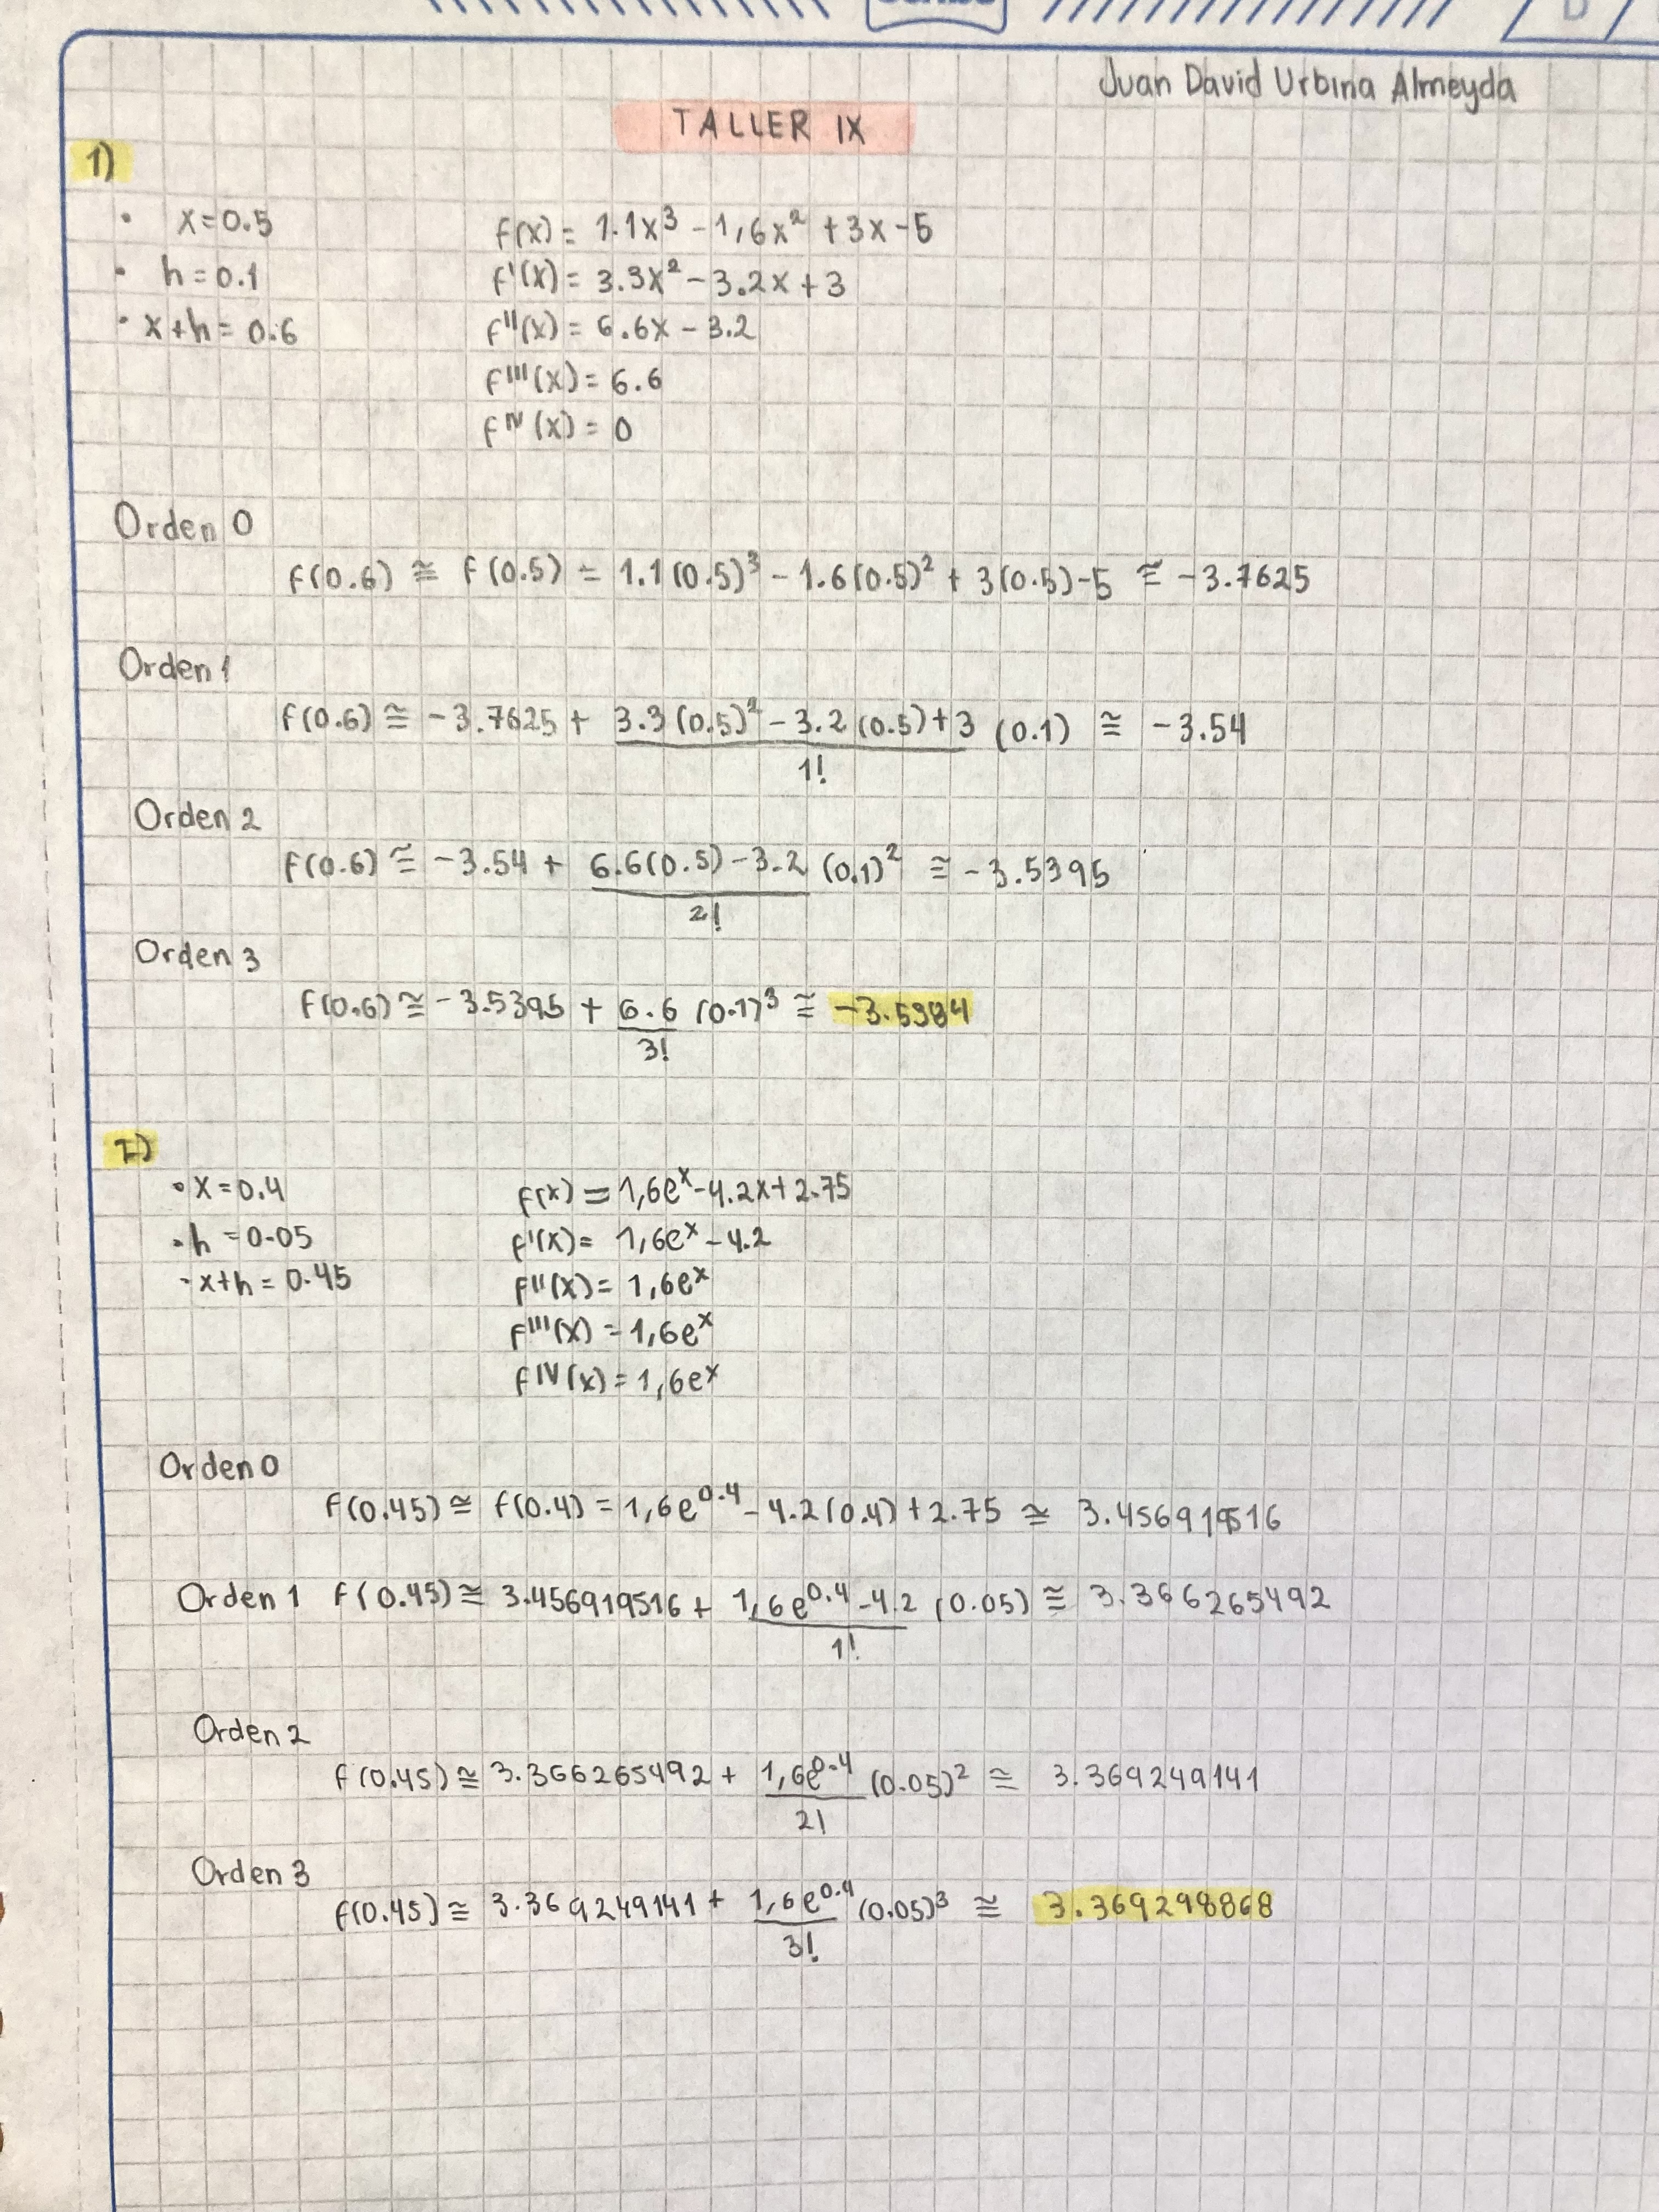 Juan David Urbina Almeyda
TALLER IX
1)
• x=0.5 f(x) = 1.1x³ - 1,6x² + 3x - 5
• h = 0.1 f'(x) = 3.3x² - 3.2x + 3
• x+h = 0.6 f''(x) = 6.6x - 3.2
f'''(x) = 6.6
f^IV (x) = 0
Orden 0
f(0.6) ≅ f(0.5) = 1.1(0.5)³ - 1.6(0.5)² + 3(0.5)-5 ≅ -3.7625
Orden 1
f(0.6) ≅ -3.7625 + 3.3(0.5)² - 3.2(0.5)+3 (0.1) ≅ -3.54
1!
Orden 2
f(0.6) ≅ -3.54 + 6.6(0.5) - 3.2 (0.1)² ≅ -3.5395
2!
Orden 3
f(0.6) ≅ -3.5395 + 6.6 (0.1)³ ≅ -3.5384
3!
2)
• x = 0.4 f(x) = 1,6e^x - 4.2x + 2.75
• h = 0.05 f'(x) = 1,6e^x - 4.2
- x+h = 0.45 f''(x) = 1,6e^x
f'''(x) = 1,6e^x
f^IV(x) = 1,6e^x
Orden 0
f(0.45) ≅ f(0.4) = 1,6e^0.4 - 4.2(0.4) + 2.75 ≅ 3.456919516
Orden 1 f(0.45) ≅ 3.456919516 + 1,6e^0.4 - 4.2 (0.05) ≅ 3.366265492
1!
Orden 2
f(0.45) ≅ 3.366265492 + 1,6e^0.4 (0.05)² ≅ 3.369249141
2!
Orden 3
f(0.45) ≅ 3.369249141 + 1,6e^0.4 (0.05)³ ≅ 3.369298868
3!